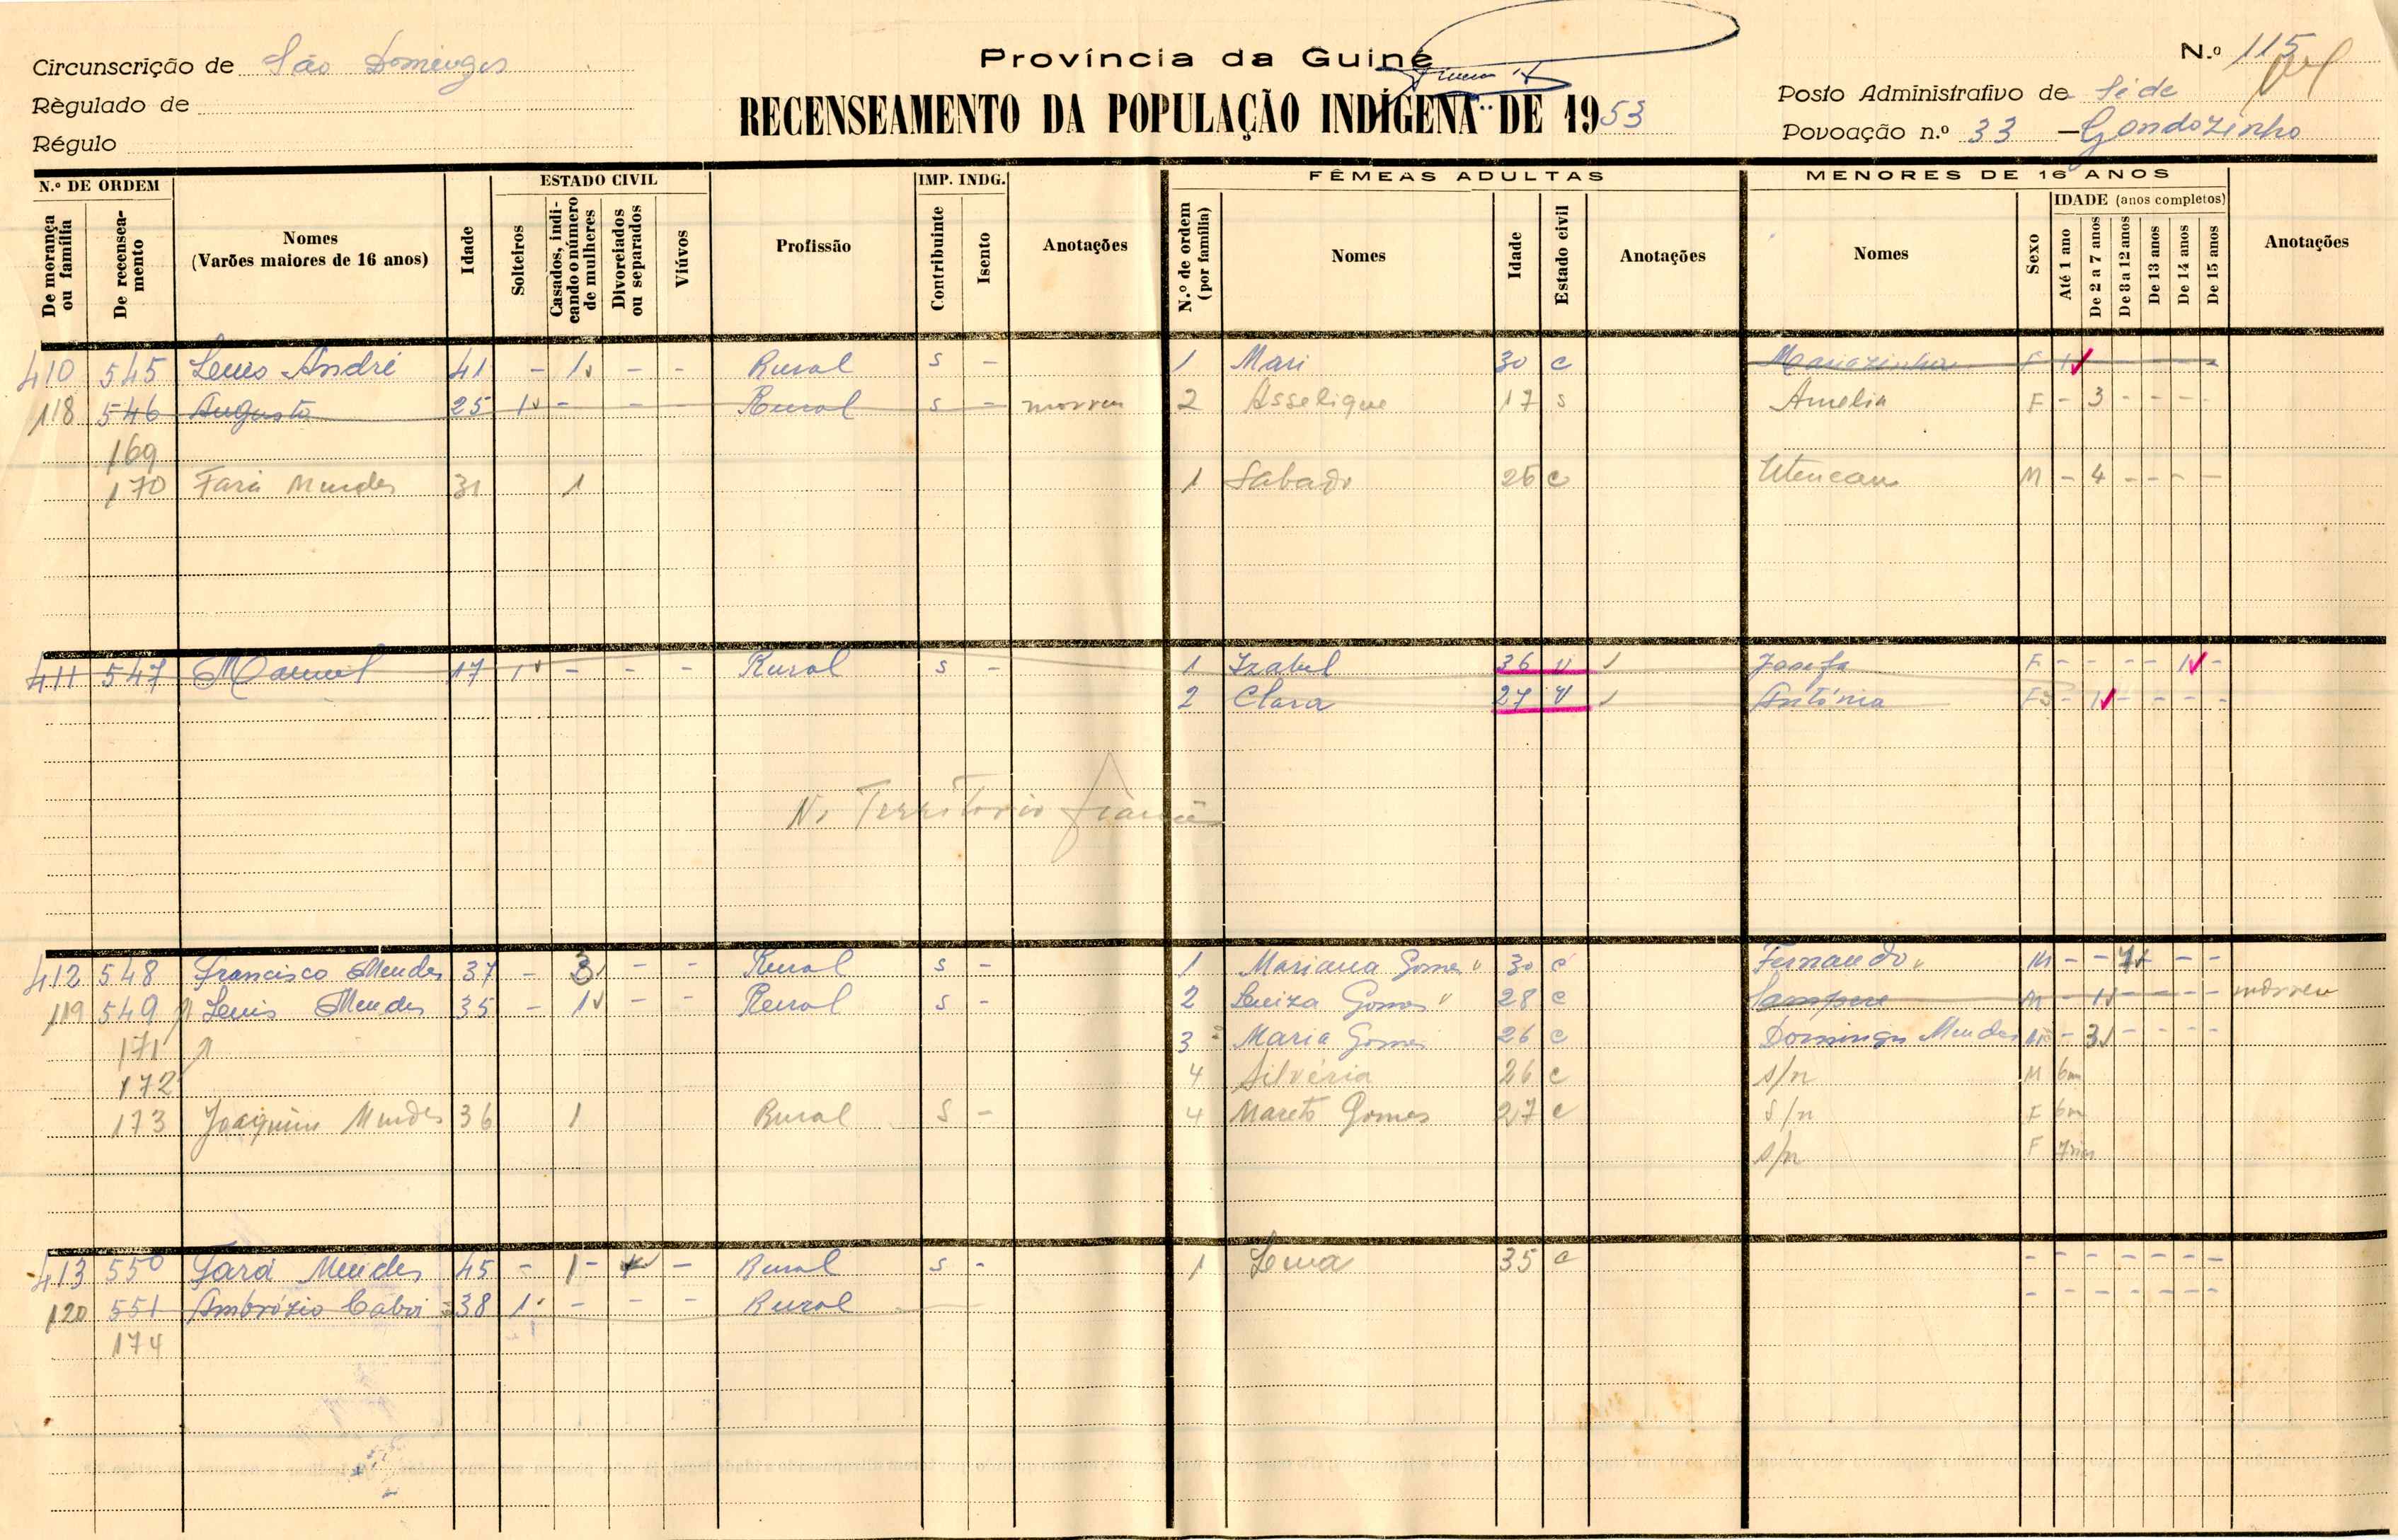 Província da Guiné
N.º 115
Circunscrição de São Domingos
Règulado de
Régulo
RECENSEAMENTO DA POPULAÇÃO INDÍGENA DE 1953
Posto Administrativo de Séde
Povoação n.º 33 - Gondozinho
N.º DE ORDEM
De morança ou família
De recenseamento
Nomes
(Varões maiores de 16 anos)
Idade
ESTADO CIVIL
Solteiros
Casados, indicando o número de mulheres
Divorciados ou separados
Viúvos
Profissão
IMP. INDG.
Contribuinte
Isento
Anotações
FÊMEAS ADULTAS
N.º de ordem (por família)
Nomes
Idade
Estado civil
Anotações
MENORES DE 16 ANOS
Nomes
Sexo
IDADE (anos completos)
Até 1 ano
De 2 a 7 anos
De 8 a 12 anos
De 13 anos
De 14 anos
De 15 anos
Anotações
410 545 Luis André 41 - 1 - - Rural s - 1 Mari 30 c Mariazinha F 1 - - - -
118 546 Augusto 25 1 - - Rural s - morreu 2 Asselique 17 s Amelia F - 3 - - - -
169
170 Fará Mendes 31 1 1 Sabado 26 c M - 4 - - - -
411 547 Manuel 17 1 - - - Rural s - 1 Izabel 36 v Josefa F - - - - 1 -
2 Clara 27 v Antónia F - 1 - - - -
No Territorio
412 548 Francisco Mendes 37 - 3 - - Rural s - 1 Mariana Gomes 30 c Fernando M - - 1 - -
119 549 Luis Mendes 35 - 1 - - Rural s - 2 Luiza Gomes 28 c M - 1 - - - - morreu
171 3 Maria Gomes 26 c Domingos Mendes M - 3 - - - -
172 4 Silvéria 26 c s/n M 6m
173 Joaquim Mendes 36 1 Rural s - 4 Gomes 27 c s/n F 6m
s/n F 7m
413 550 Fará Mendes 45 - 1 - - Rural s - 1 35 c - - - - - - -
120 551 Ambrózio 38 1 - - - Rural - - - - - - -
174